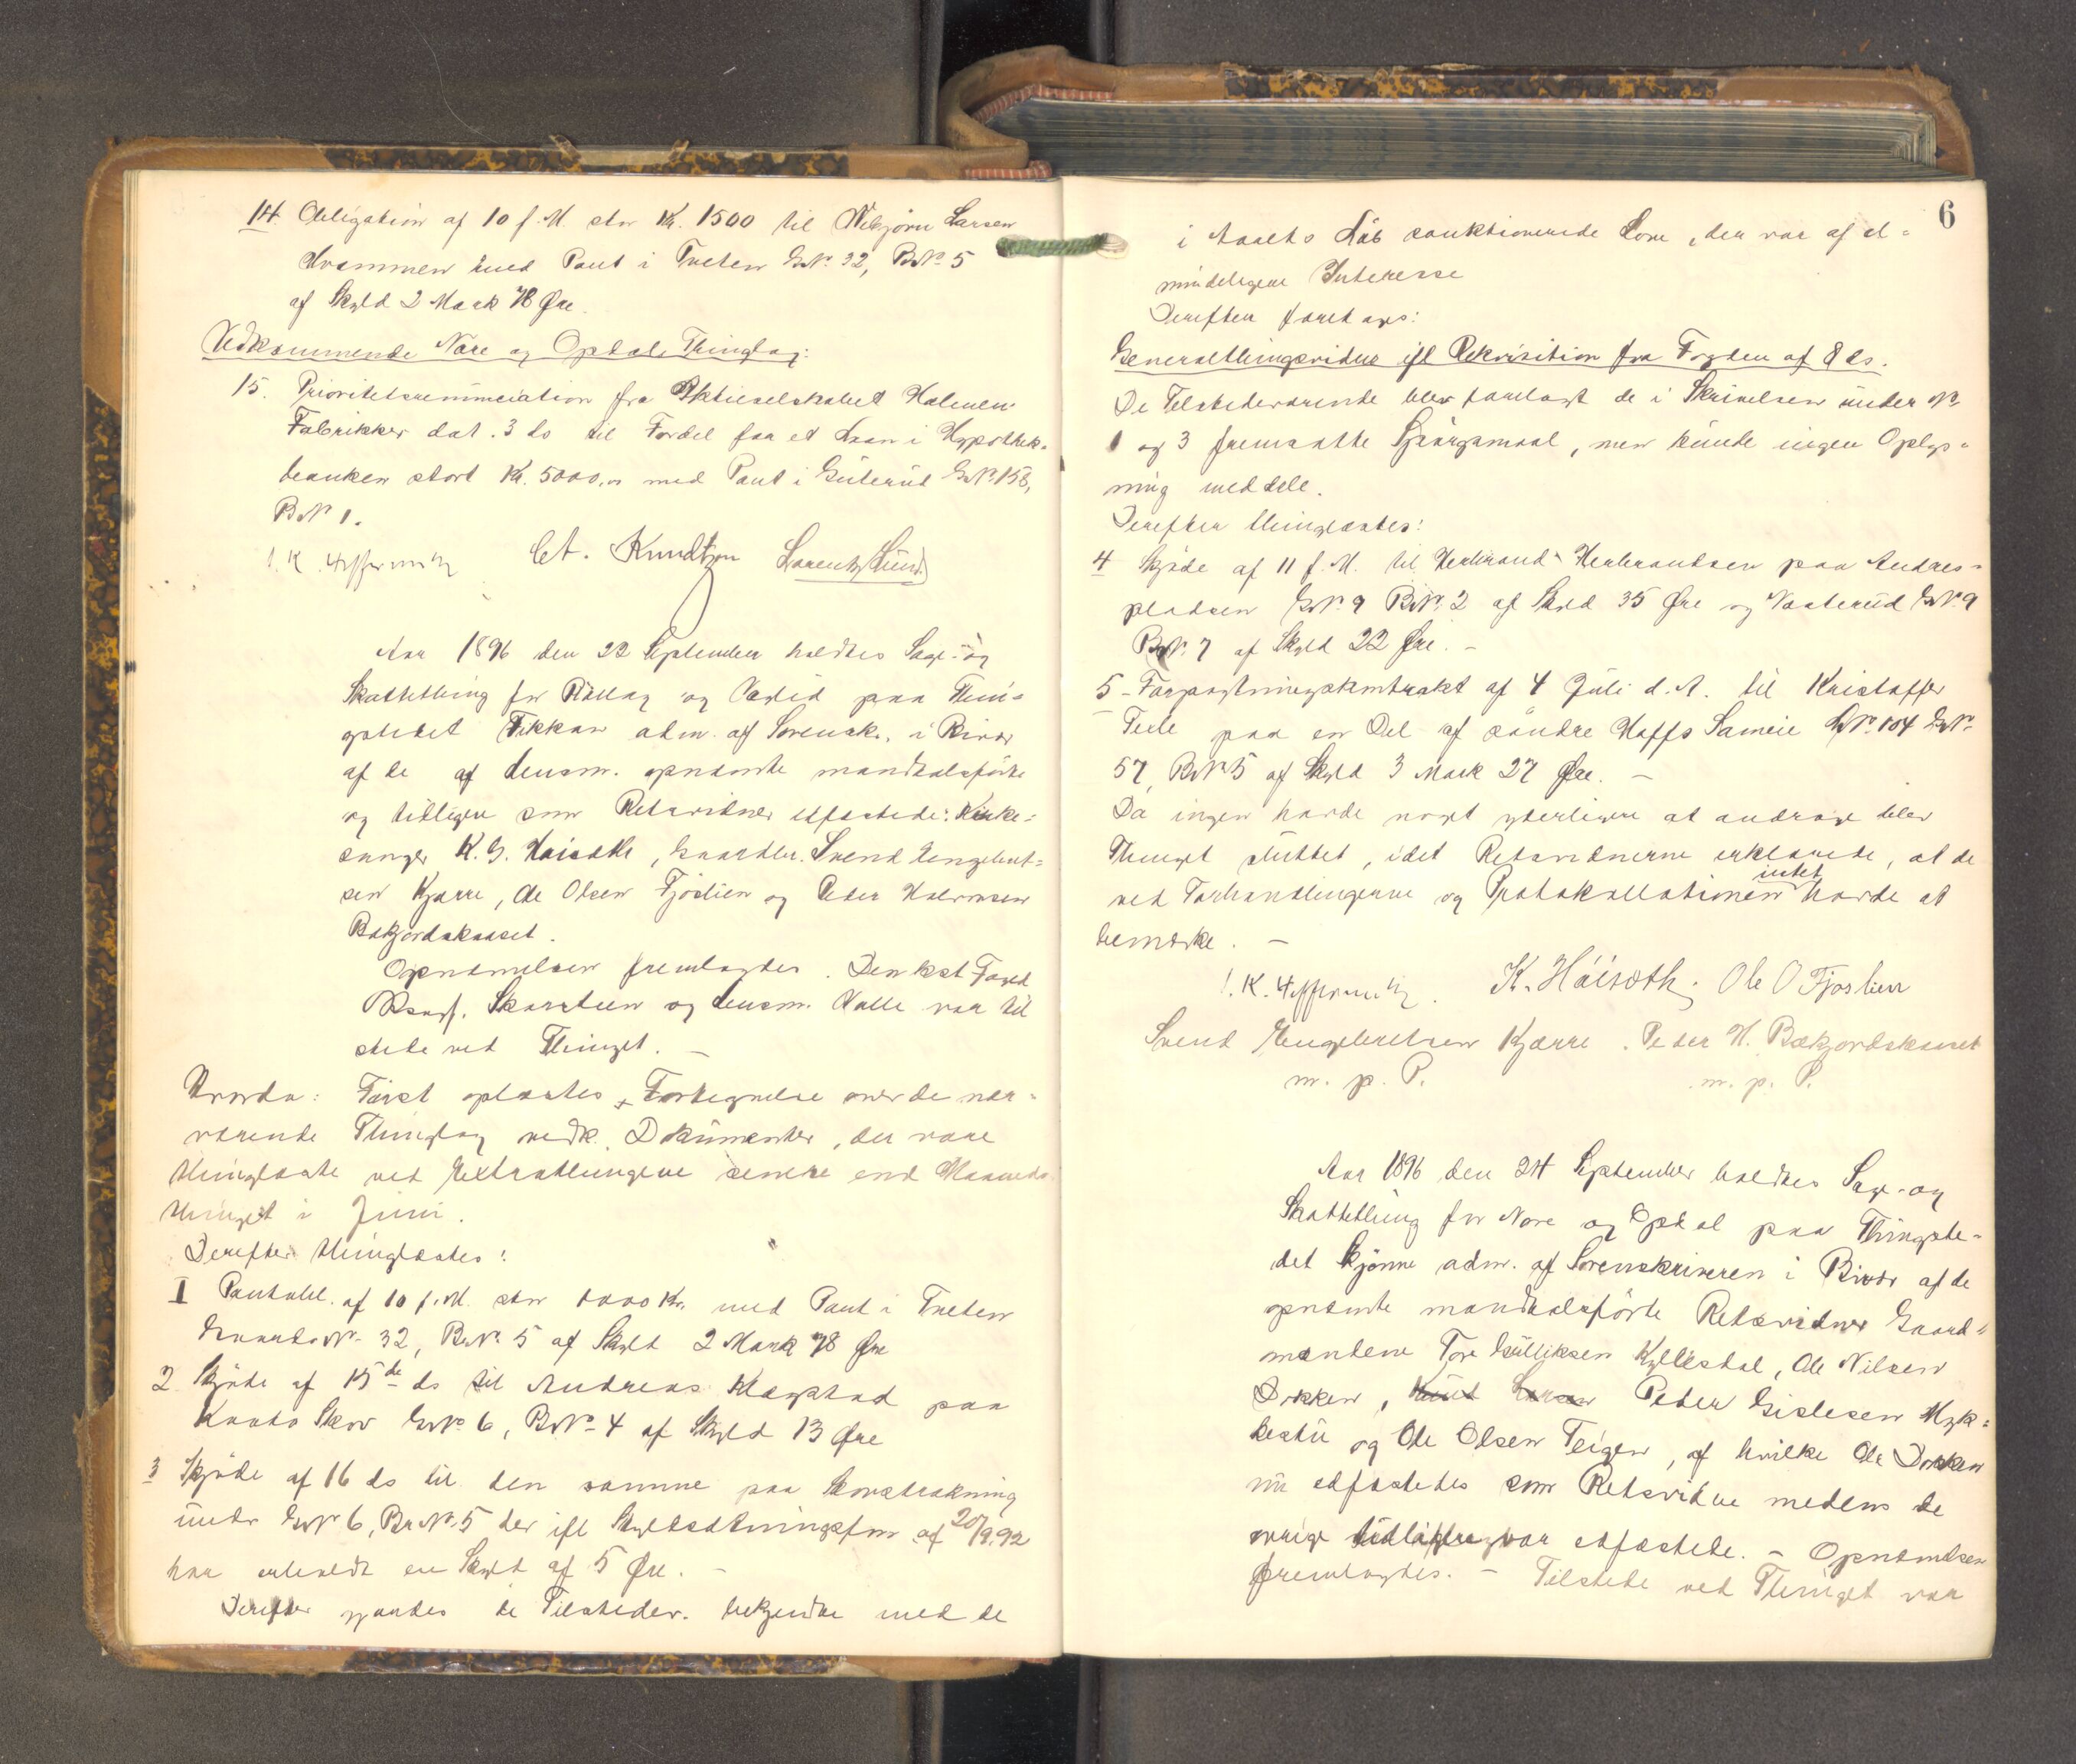 14. Obligation af 10 f. M. stor Kr. 1500 til Vebjørn Larsen
Hvammen med Pant i Tveten G.No. 32, B.No. 5
af Skyld 2 Mark 78 Øre.
Vedkommende Nore og Opdals Thinglag:
15. Prioritetsrenunciation fra Aktieselskabet Holmens
Fabrikker dat. 3 ds til Fordel for et Laan i Hypothek-
banken stort Kr. 5000,00 med Pant i Guterud G.No. 158,
B.No 1.
Ct. Knudtzon Lorentz Lund
Aar 1896 den 22 September holdtes Sage- og
Skattething for Rollag og Veglid paa Thing-
stedet Fikkan adm. af Sorenskr. i
af de af Lensm. opnævnte mandtalsførte
og tidligere som Retsvidner edfæstede: Kirke-
sanger K. G. Høisæth, Gaardbr. Svend Engebret-
sen Kjærre, Ole Olsen Fjøslien og Peder Halvorsen
Bækjordskaaset.
Opnævnelsen fremlagdes. Den kst Foged
Skarsteen og Lensm. Halle var til
stede ved Thinget. –
Hvorda: Først oplæstes Fortegnelse over de nær-
værende Thinglag vedk. Dokumenter, der vare
thinglæste ved Extrathingene senere end Maaneds-
thinget i Juni.
Derefter thinglæstes:
1 Pantobl. af 10 f. M. stor 1000 Kr. med Pant i Tveten
Gaards No. 32, B.No. 5 af Skyld 2 Mark 78 Øre
2 Skjøde af 15de ds til Andreas Klegstad paa
Skov G.No. 6, B.No. 4 af Skyld 13 Øre
3 Skjøde af 16 ds til den samme paa Skovstrækning
under G.No 6, Br.No. 5 der ifl Skyldsætningsfor. af 20/9.92
har erholdt en Skyld af 5 Øre. –
Derefter gjordes de Tilstedev. bekjendte med de
6
i Aarets Løb sanktionerede Love, der var af al-
mindeligere Interesse
Derefter foretoges:
Generalthingsvidne ifl Rekvisition fra Fogden af 8 ds.
De Tilstedeværende blev forelagt de i Skrivelsen under No
1 og 3 fremsatte Spørgsmaal, men kunde ingen Oplys-
ning meddele.
Derefter thinglæstes:
4 Skjøde af 11 f. M. til Herbrand Herbrandsen paa Andres-
pladsen G.No. 9 B.No. 2 af Skyld 35 Øre og G.No. 9
B.No. 7 af Skyld 22 Øre. –
5 – Forpagtningskontrakt af 4 Juli d. A. til Kristoffer
paa en Del af søndre Hoffs Sameie No. 104 G.No.
57, B.No 5 af Skyld 3 Mark 27 Øre. –
Da ingen havde noget yderligere at andrage blev
Thinget sluttet, idet Retsvidnerne erklærede, at de
intet
ved Forhandlingerne og Protokollationen havde at
bemærke. –
K. Høisæth. Ole O Fjøslien
Svend Engebretsen Kjærre. Peder H. Bækjordskaaset
m. p. P. m. p. P.
Aar 1896 den 24 September holdtes Sage- og
Skattething for Nore og Opdal paa Thingste-
det Skjønne adm. af Sorenskriveren i af de
opnævnte mandtalsførte Retsvidner Gaard-
mændene Tore Gulliksen Kyllesdal, Ole Nilsen
Dokken, Knut Larsen Peder Gislesen Myk-
bestu og Ole Olsen Teigen, af hvilke Ole Dokken
nu edfæstedes som Retsvidne medens de
øvrige tidligere var edfæstede. – Opnævnelsen
fremlagdes. – Tilstede ved Thinget var